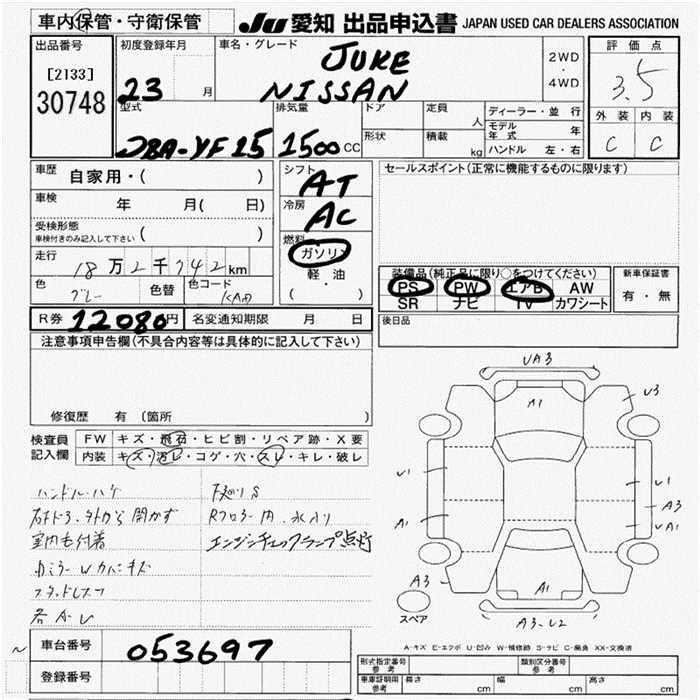 車内保管・守衛保管
JU 愛知 出品申込書 JAPAN USED CAR DEALERS ASSOCIATION
出品番号
[2133]
30748
初度登録年月
23 月
車名・グレード
JUKE
NISSAN
2WD
・
4WD
評価点
3.5
外装 内装
C C
型式
DBA-YF15
排気量
1500 CC
ドア
形状
定員
人
積載
kg
ディーラー・並行
モデル年式 年
ハンドル 左・右
車歴
自家用・( )
車検
年 月( 日)
受検形態
車検付きのみ記入して下さい
( )
走行
18万2千742km
色
グレー
色替
色コード
KAD
シフト
AT
冷房
AC
燃料
ガソリン
軽・油
( )
セールスポイント(正常に機能するものに限ります)
装備品(純正品に限り○をつけてください)
PS PW エアB AW
SR ナビ TV カワシート
新車保証書
有・無
R券 12080円
名変通知期限 月 日
後日品
注意事項申告欄(不具合内容等は具体的に記入して下さい)
修復歴 有 (箇所 )
検査員
記入欄
FW キズ・飛石・ヒビ割・リペア跡・X要
内装 キズ・汚レ・コゲ・穴・スレ・キレ・破レ
ハンドル・ハゲ
下廻りS
右ドラ、外から開かず
Rフロアー内、水入り
室内も付着
エンジンチェックランプ点灯
スタッドレス
各A・U
UA3
A1
U3
U1
A1
U1
A3
UA1
A3
A1
A3-U2
スペア
A-キズ E-エクボ U-凹み W-補修跡 S-サビ C-腐食 XX-交換済
車台番号
053697
登録番号
形式指定番号
参考
類別区分番号
参考
車庫証明用
参考
長さ cm 幅 cm 高さ cm